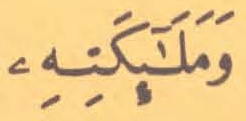 وَمَلَـٰٓئِكَتِهِۦ